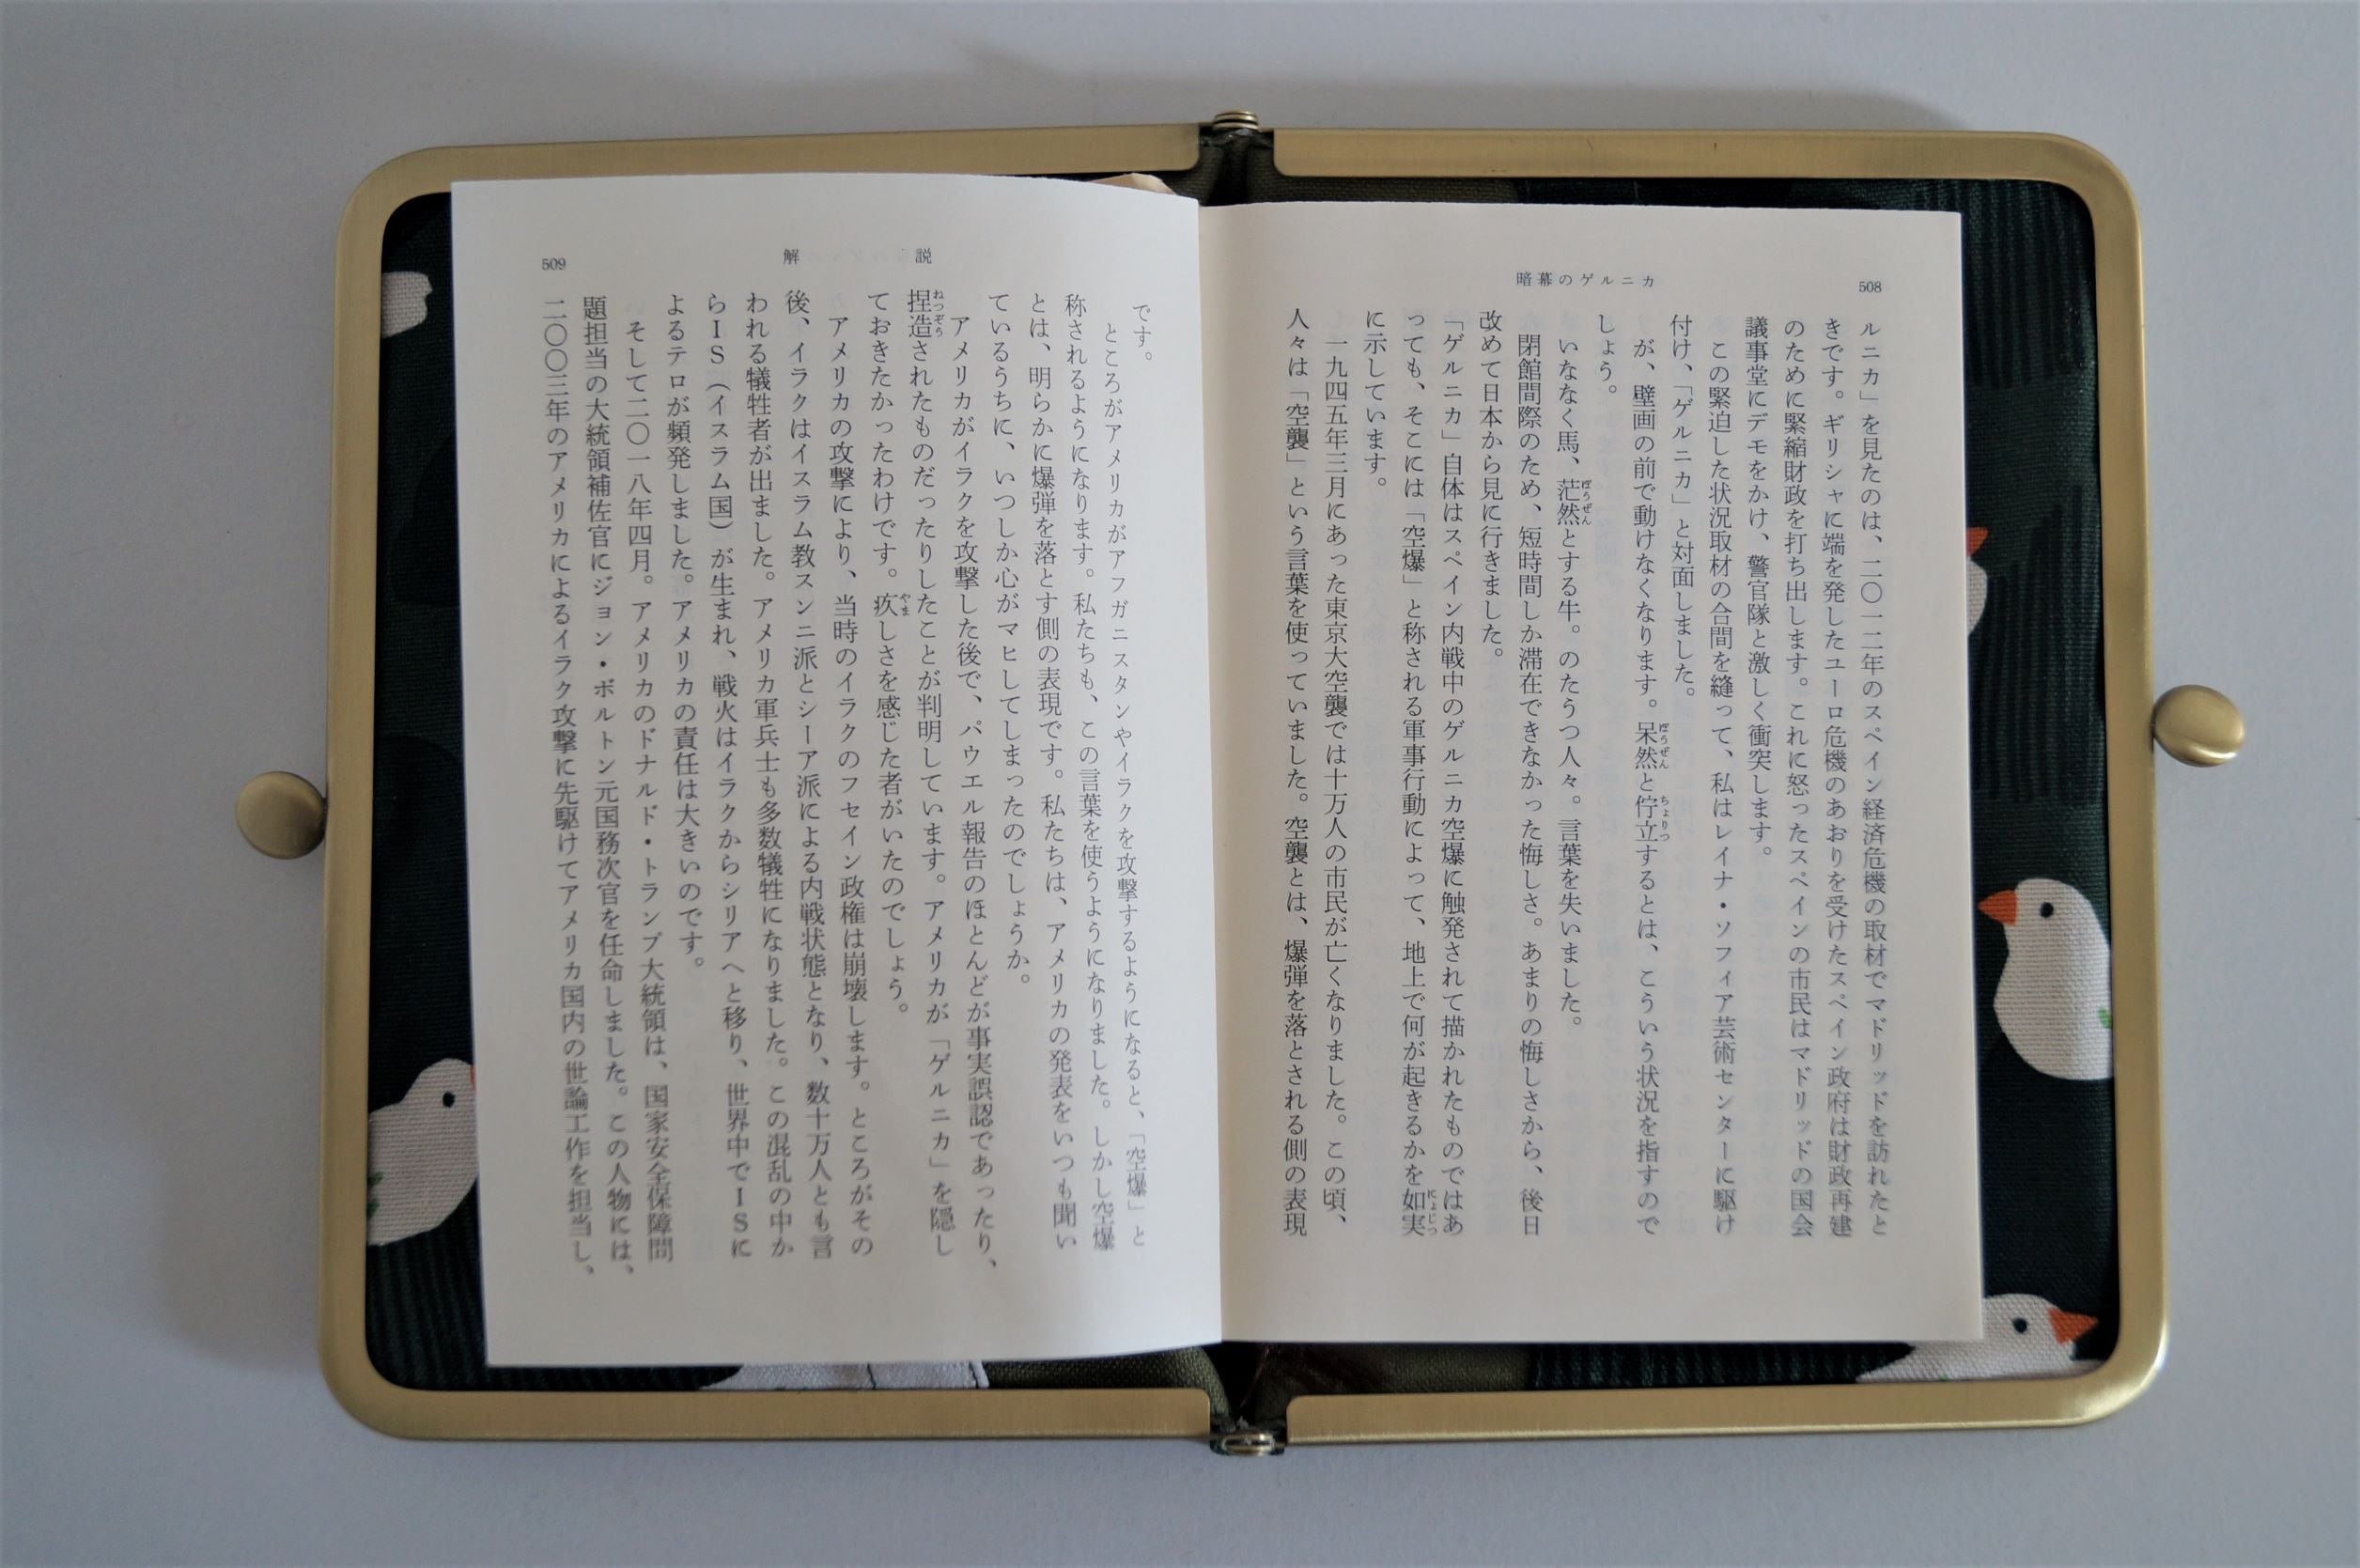 508
暗幕のゲルニカ
ルニカ」を見たのは、二〇一二年のスペイン経済危機の取材でマドリッドを訪れたと
きです。ギリシャに端を発したユーロ危機のあおりを受けたスペイン政府は財政再建
のために緊縮財政を打ち出します。これに怒ったスペインの市民はマドリッドの国会
議事堂にデモをかけ、警官隊と激しく衝突します。
この緊迫した状況取材の合間を縫って、私はレイナ・ソフィア芸術センターに駆け
付け、「ゲルニカ」と対面しました。
が、壁画の前で動けなくなります。呆然と佇立するとは、こういう状況を指すので
しょう。
いななく馬、茫然とする牛。のたうつ人々。言葉を失いました。
閉館間際のため、短時間しか滞在できなかった悔しさ。あまりの悔しさから、後日
改めて日本から見に行きました。
「ゲルニカ」自体はスペイン内戦中のゲルニカ空爆に触発されて描かれたものではあ
っても、そこには「空爆」と称される軍事行動によって、地上で何が起きるかを如実
に示しています。
一九四五年三月にあった東京大空襲では十万人の市民が亡くなりました。この頃、
人々は「空襲」という言葉を使っていました。空襲とは、爆弾を落とされる側の表現
解説
509
です。
ところがアメリカがアフガニスタンやイラクを攻撃するようになると、「空爆」と
称されるようになります。私たちも、この言葉を使うようになりました。しかし空爆
とは、明らかに爆弾を落とす側の表現です。私たちは、アメリカの発表をいつも聞い
ているうちに、いつしか心がマヒしてしまったのでしょうか。
アメリカがイラクを攻撃した後で、パウエル報告のほとんどが事実誤認であったり、
捏造されたものだったりしたことが判明しています。アメリカが「ゲルニカ」を隠し
ておきたかったわけです。疚しさを感じた者がいたのでしょう。
アメリカの攻撃により、当時のイラクのフセイン政権は崩壊します。ところがその
後、イラクはイスラム教スンニ派とシーア派による内戦状態となり、数十万人とも言
われる犠牲者が出ました。アメリカ軍兵士も多数犠牲になりました。この混乱の中か
らIS（イスラム国）が生まれ、戦火はイラクからシリアへと移り、世界中でISに
よるテロが頻発しました。アメリカの責任は大きいのです。
そして二〇一八年四月。アメリカのドナルド・トランプ大統領は、国家安全保障問
題担当の大統領補佐官にジョン・ボルトン元国務次官を任命しました。この人物には、
二〇〇三年のアメリカによるイラク攻撃に先駆けてアメリカ国内の世論工作を担当し、